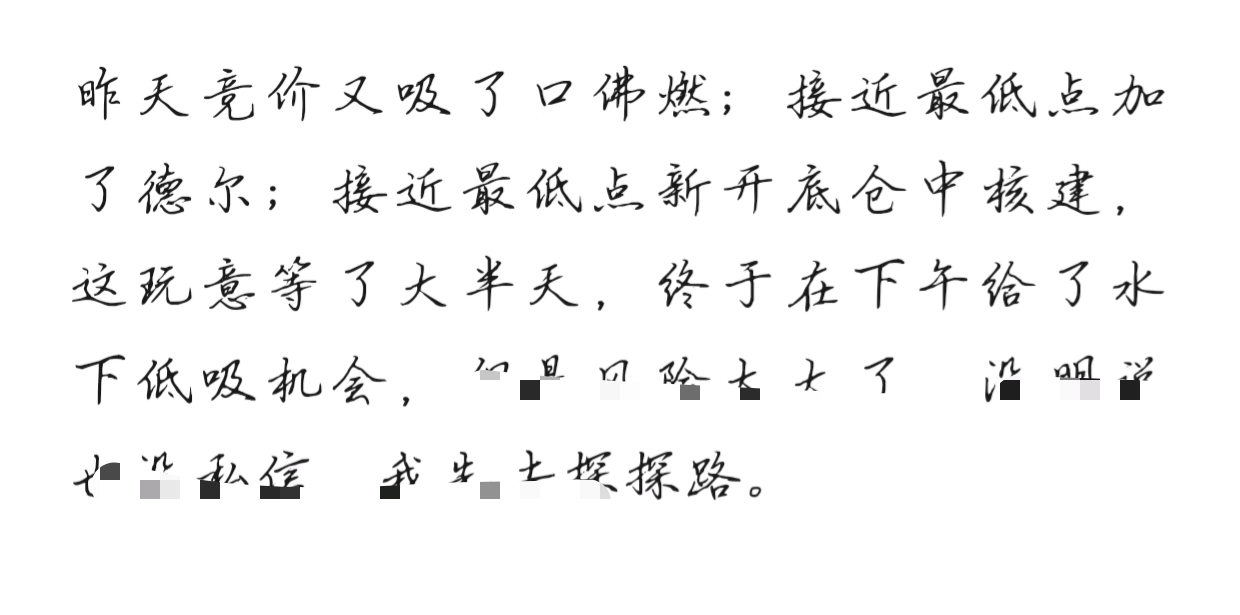 昨天竞价又吸了口佛燃；接近最低点加
了德尔；接近最低点新开底仓中核建，
这玩意等了大半天，终于在下午给了水
下低吸机会，
私信 我 探路。